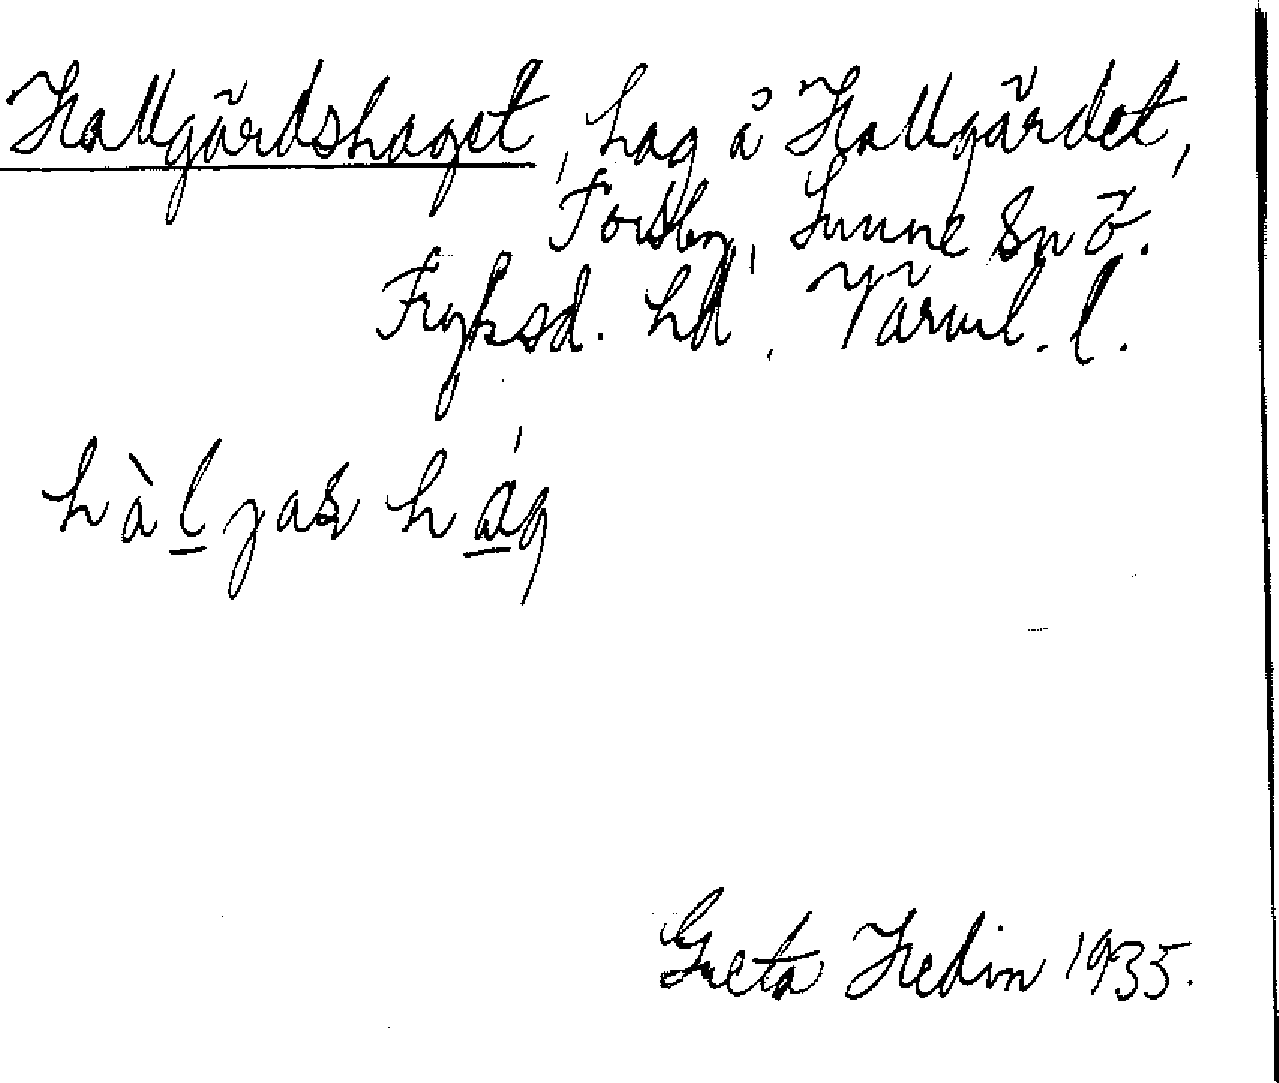 Hallgärdshaget, hag å Hallgärdet,
Forsby, Sunne sn ö.
Fryksd. hd, Värml. l.
hàl̲jas ha̲'g
Greta Hedin 1935.